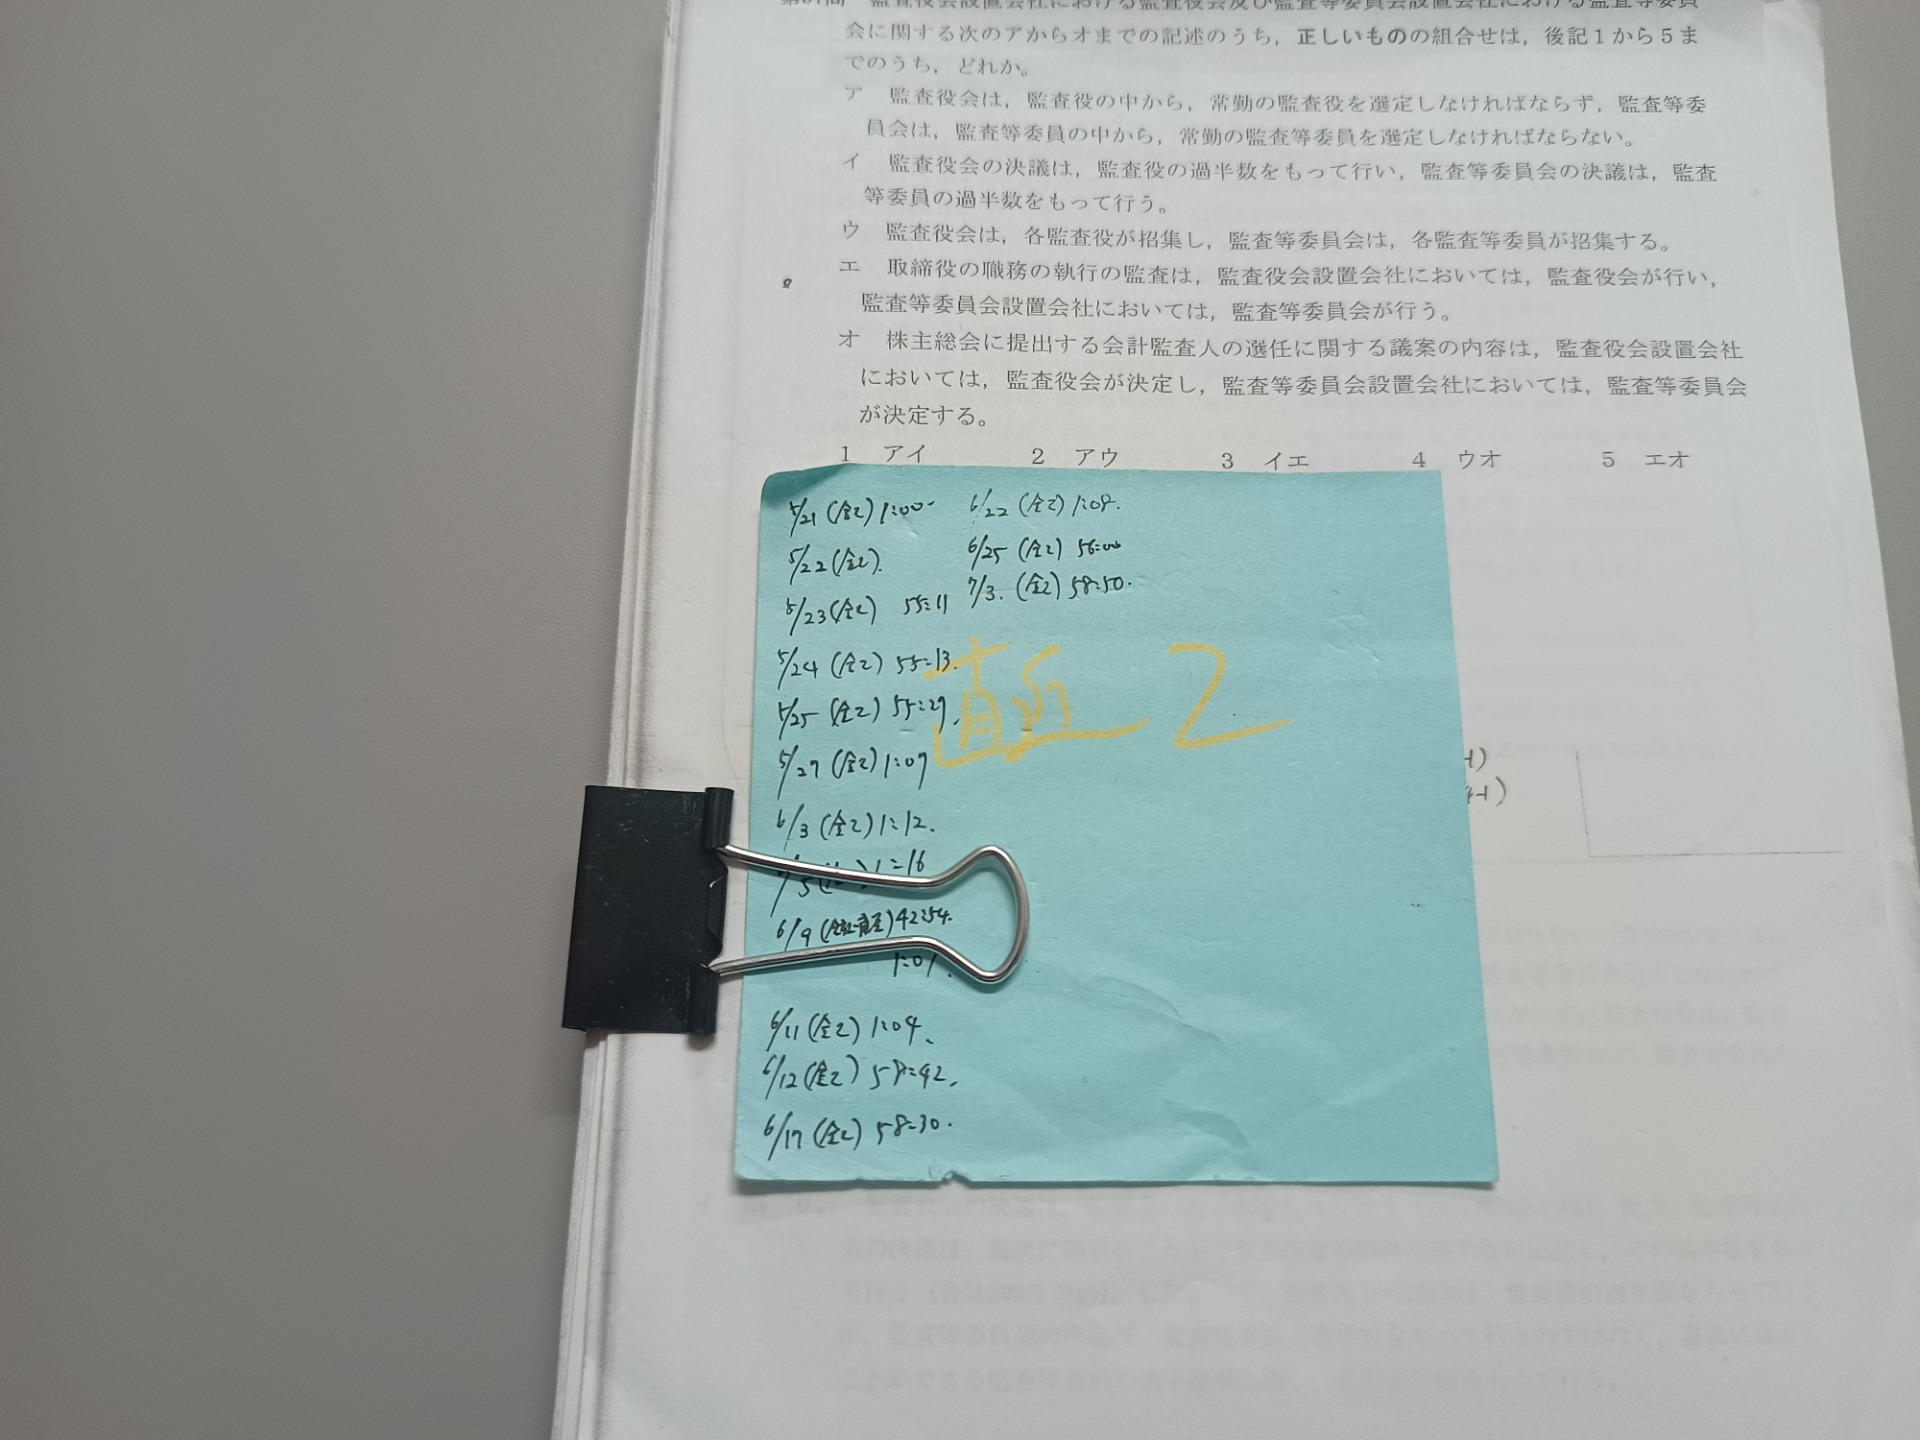 監査役会設置会社における監査役会及び監査等委員会設置会社における監査等委員
会に関する次のアからオまでの記述のうち，正しいものの組合せは，後記１から５ま
でのうち，どれか。
ア　監査役会は，監査役の中から，常勤の監査役を選定しなければならず，監査等委
員会は，監査等委員の中から，常勤の監査等委員を選定しなければならない。
イ　監査役会の決議は，監査役の過半数をもって行い，監査等委員会の決議は，監査
等委員の過半数をもって行う。
ウ　監査役会は，各監査役が招集し，監査等委員会は，各監査等委員が招集する。
エ　取締役の職務の執行の監査は，監査役会設置会社においては，監査役会が行い，
監査等委員会設置会社においては，監査等委員会が行う。
オ　株主総会に提出する会計監査人の選任に関する議案の内容は，監査役会設置会社
においては，監査役会が決定し，監査等委員会設置会社においては，監査等委員会
が決定する。
1　アイ　2　アウ　3　イエ　4　ウオ　5　エオ
5/21 (全2) 1:00
5/22 (全2).
5/23 (全2) 55:11
5/24 (全2) 55:13.
5/25 (全2) 55:29.
5/27 (全2) 1:07
6/3 (全2) 1:12.
1:16
6/9 42:54.
1:01.
6/11 (全2) 1:04.
6/12 (全2) 59:42.
6/17 (全2) 58:30.
6/22 (全2) 1:08.
6/25 (全2) 56:00
7/3. (全2) 58:50.
直近2